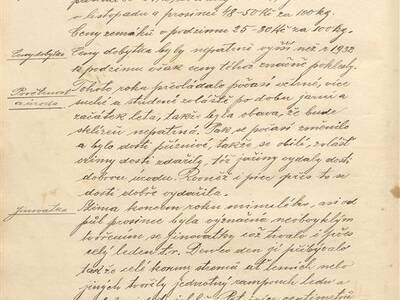 v listopadu a prosinci 48-50 Kč za 100 kg.
Ceny zemáků v podzimu 25-30 Kč za 100 kg.
Ceny dobytka
Ceny dobytka byly nepatrně vyšší než r. 1932
k podzimu však ceny téhož značně poklesly.
Povětrnost
a úroda
Tohoto roku převládalo počasí větrné, více
suché a studené zvláště po dobu jara a
začátek léta, takže byla obava, že bude
sklizeň nepatrná. Pak se počasí změnilo
a bylo dosti příznivé, takže se obilí, zvlášť
oziminy dosti zdařily, též jařiny vydaly dosti
dobrou úrodu. Rovněž i píce přes to se
dosti dobře vydařila.
Jinovatka
Zima koncem roku minulého, asi od
půl prosince byla význačná neobvyklým
tvořením se jinovatky což trvalo i přes
celý leden t.r. Den ode dne jí přibývalo
takže celé koruny stromů ať lesních nebo
jiných tvořily jednotný rampouch ledu a